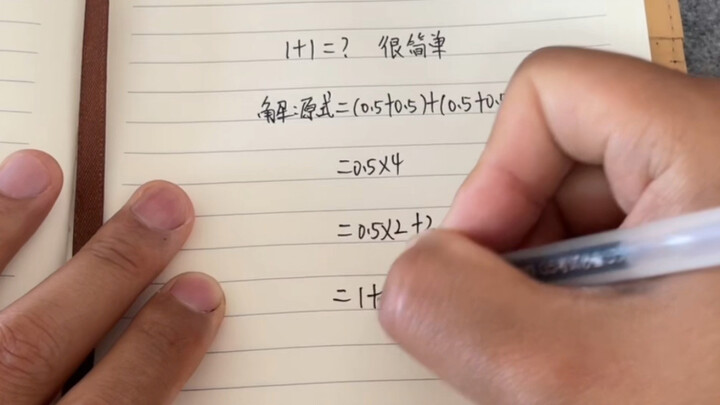 1+1=? 很简单
解:源式=(0.5+0.5)+(0.5+0.5
=0.5×4
=0.5×2+
=1+